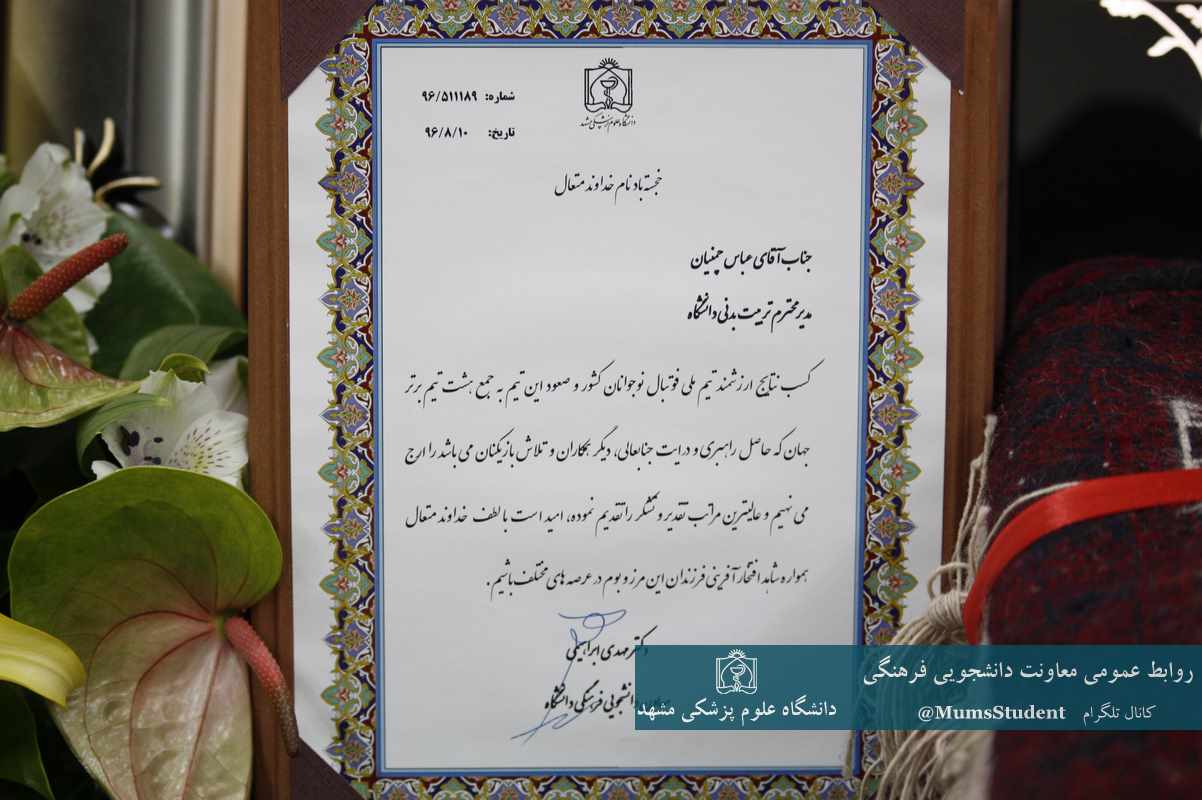 دانشگاه علوم پزشکی مشهد
شماره: ۹۶/۵۱۱۱۸۹
تاریخ: ۹۶/۸/۱۰
خجسته باد نام خداوند متعال
جناب آقای عباس چمنیان
مدیر محترم تربیت بدنی دانشگاه
کسب نتایج ارزشمند تیم ملی فوتبال نوجوانان کشور و صعود این تیم به جمع هشت تیم برتر
جهان که حاصل راهبری و درایت جنابعالی، دیگر همکاران و تلاش بازیکنان می باشد را ارج
می نهیم و عالیترین مراتب تقدیر و تشکر را تقدیم نموده، امید است با لطف خداوند متعال
همواره شاهد افتخار آفرینی فرزندان این مرز و بوم در عرصه های مختلف باشیم.
دکتر مهدی ابراهیمی
دانشجویی فرهنگی دانشگاه
روابط عمومی معاونت دانشجویی فرهنگی
دانشگاه علوم پزشکی مشهد
کانال تلگرام @MumsStudent